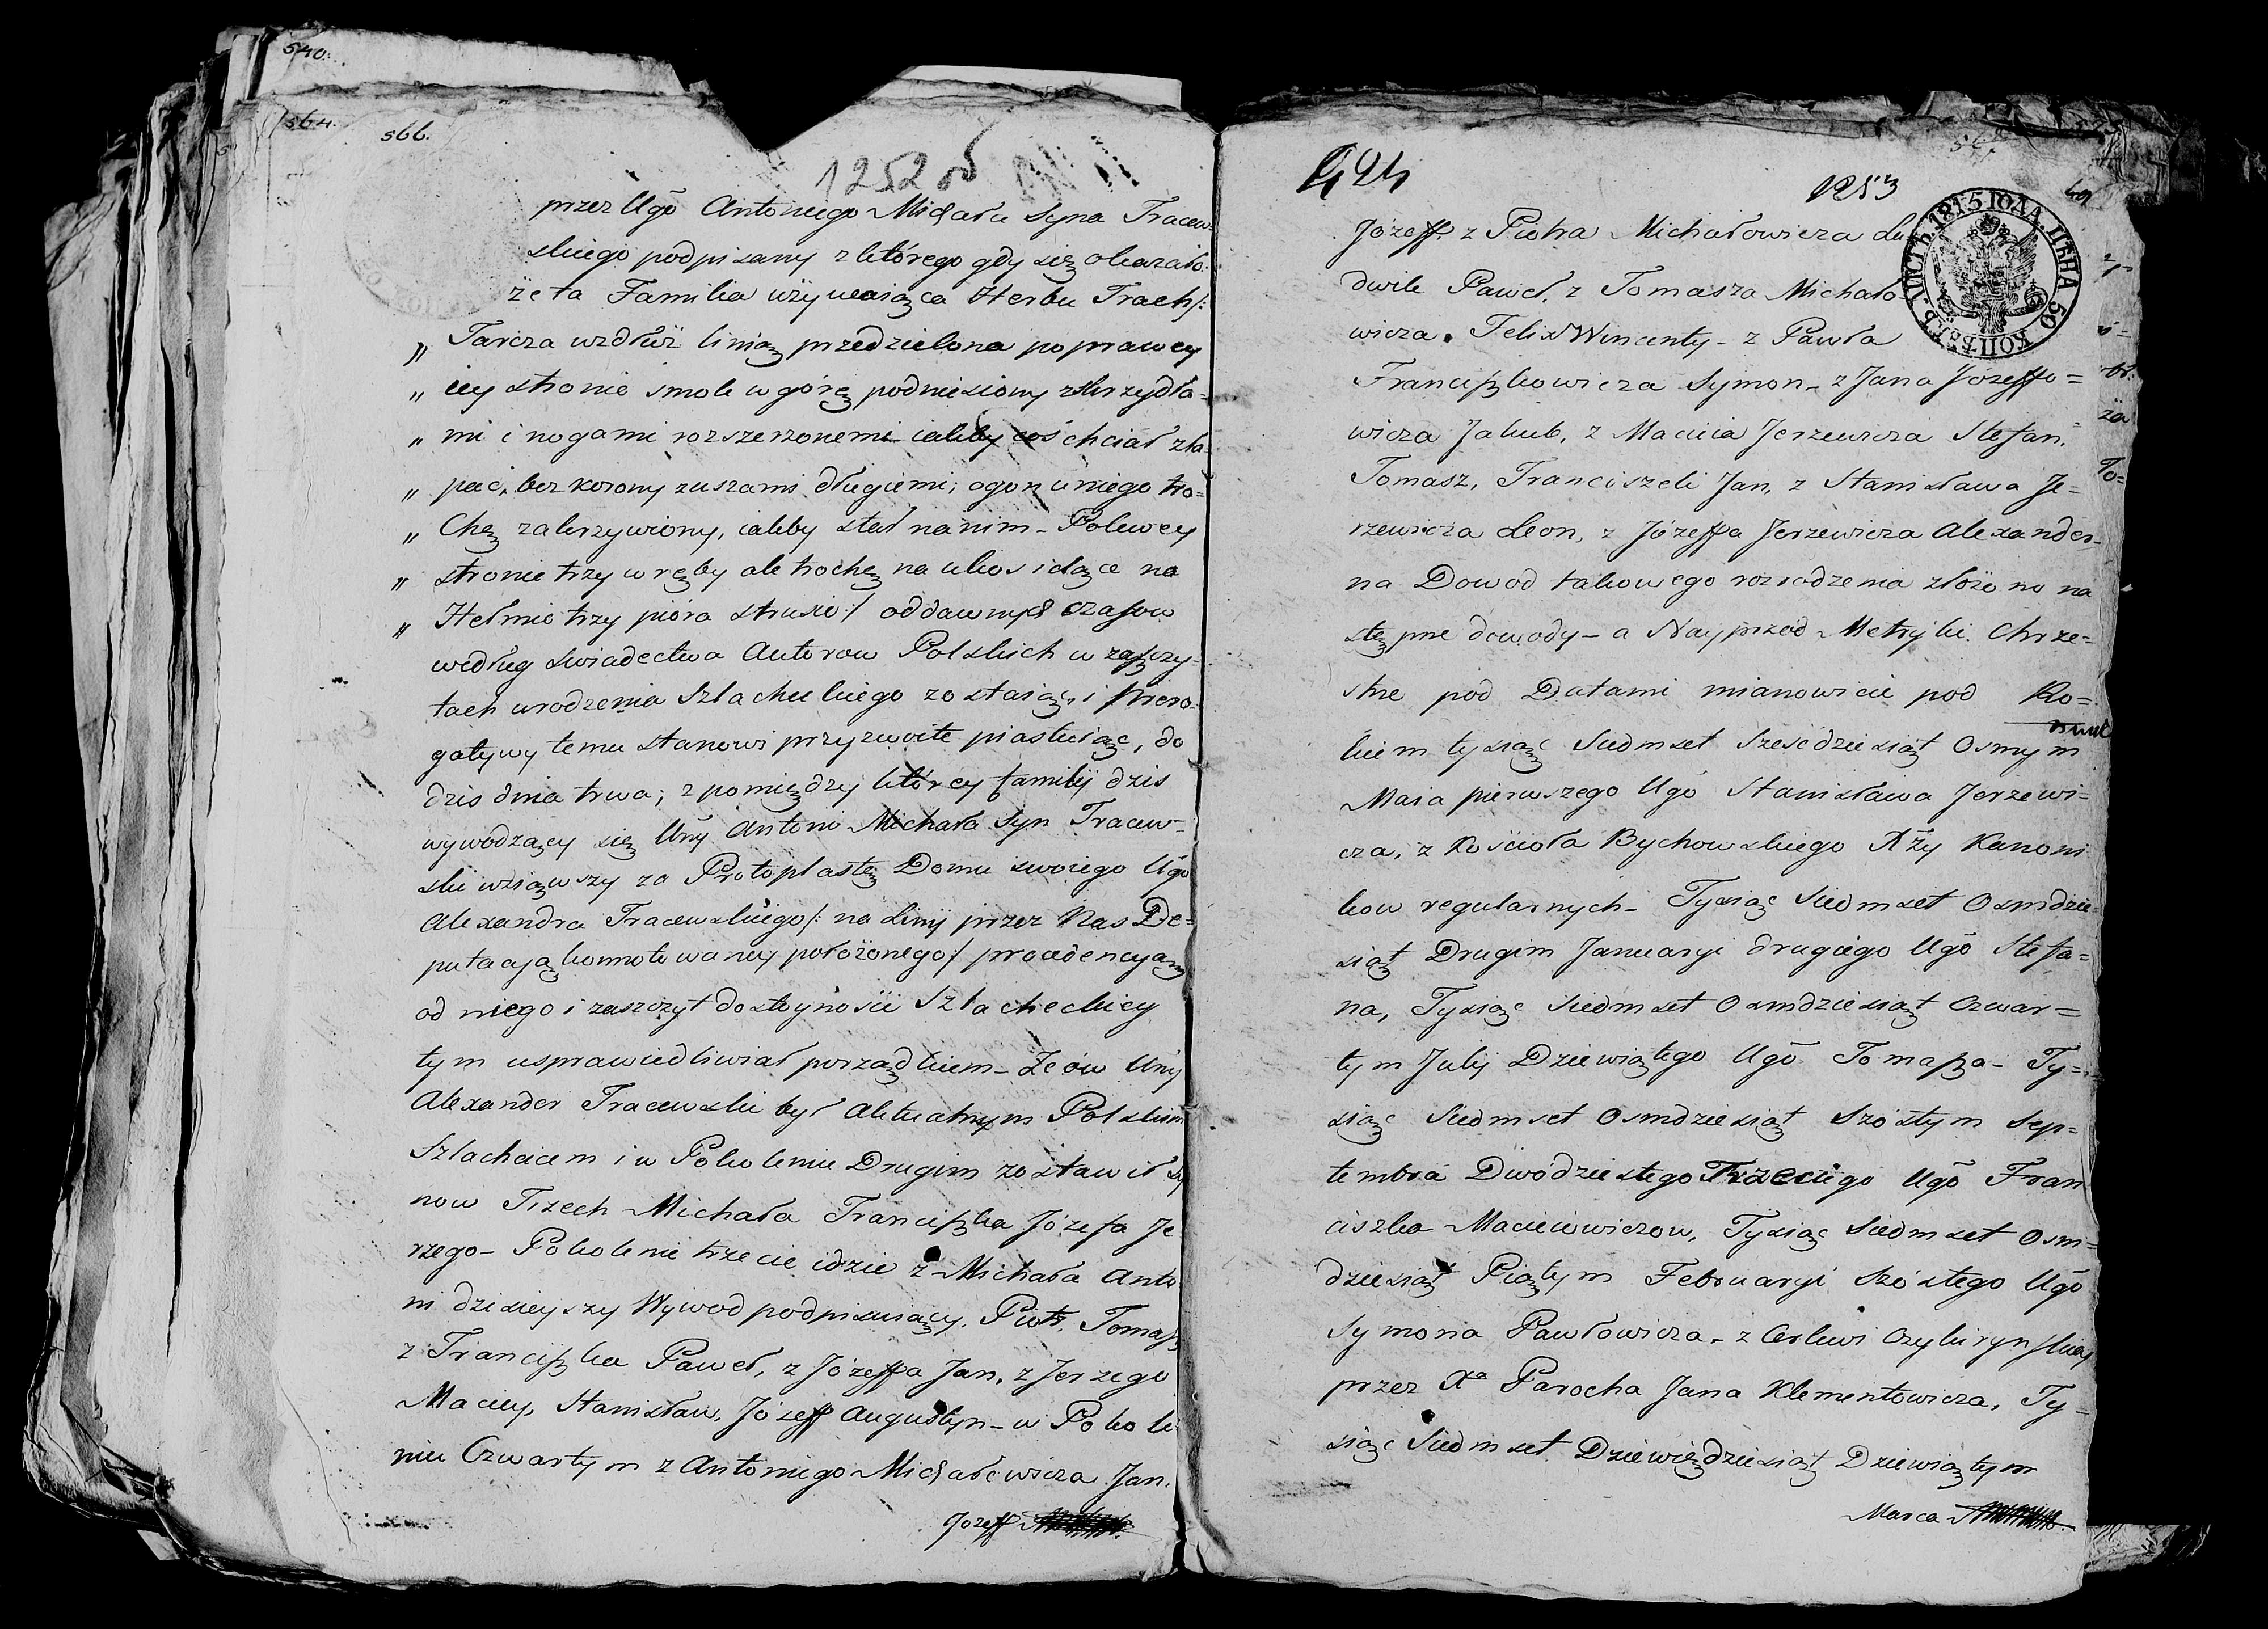 540.
564.
566.
1252 об
przez Ugo Antoniego Michała Syna Tracew
skiego podpisany z którego gdy się okazało.
że ta Familia używaiąca Herbu Trach/:
„ Tarcza wzdłuż linią przedzielona po prawey
„ iey stronie smok w górę podniesiony z skrzydła=
„ mi i nogami rozszerzonemi iakby coś chciał zła
„ pać, bez korony z uszami długiemi; ogon u niego tro=
„ Chę zakrzywiony, iakby stał na nim – Polewey
„ stronie trzy wręby ale trochę na ukos idące na
„ Hełmie trzy pióra strusie:/ oddawnych czasow
według swiadectwa Autorow Polskich w zaszczy-
tach urodzenia Szlacheckiego zostaiąc, i prero-
gatywy temu stanowi przyzwoite piastuiąc, do
dzis dnia trwa; z pomiędzy którey familij dzis
wywodzący się Uny Antoni Michała Syn Tracew-
ski wziąwszy za Protoplastę Domu swoiego Ugo
Alexandra Tracewskiego/: na Linij przez Nas De=
putacyą konnotowaney położonego:/ procedencyą
od niego i zaszczyt dostoyności Szlacheckiey
tym usprawiedliwiał porządkiem – Że ów Uny
Alexander Tracewski był Aktualnym Polskim
Szlachcicem i w Pokoleniu Drugim zostawił Sy
now Trzech Michała Franciszka Józefa Je
rzego – Pokolenie trzecie idzie z Michała Anto
ni dzisieyszy Wywod podpisuiący. Piotr, Tomasz
z Franciszka Paweł, z Józeffa Jan, z Jerzego
Maciey, Stanisław, Józeff Augustyn – w Pokole
niu Czwartym z Antoniego Michałowicza Jan.
Jozeff
424
1253
ЛИСТЪ. 1815 ГОДА. ЦѢНА 50 КОПѢЕКЪ.
Józeff. z Piotra Michałowicza Lu
dwik Paweł, z Tomasza Michało-
wicza. Felix Wincenty – z Pawła
Franciszkowicza Symon – z Jana Józeffo=
wicza Jakub, z Macieia Jerzewicza Stefan.
Tomasz, Franciszek Jan, z Stanisława Je=
rzewicza Leon, z Józeffa Jerzewicza Alexander –
na Dowod takowego rozrodzenia złożono na
stępne dowody – a Nayprzod Metryki Chrze=
stne pod Datami mianowicie pod Ro=
kiem tysiąc Siedmset Sześćdziesiąt Osmym
Maia pierwszego Ugo Stanisława Jerzewi=
cza, z Kościoła Bychowskiego XXży Kanoni
kow regularnych – Tysiąc Siedmset Osmdzie=
siąt Drugim Januaryi drugiego Ugo Stefa=
na, Tysiąc Siedmset Osmdziesiąt Czwar=
tym Julij Dziewiątego Ugo Tomasza – Ty=
siąc Siedmset Osmdziesiąt Szóstym Sep=
tembra Dwódziestego Trzeciego Ugo Fran
ciszka Macieiowiczow, Tysiąc Siedmset Osm=
dziesiąt Piątym Februaryi Szóstego Ugo
Symona Pawłowicza – z Cerkwi Czykirynskiey
przez Xa Parocha Jana Klementowicza, Ty-
siąc Siedmset Dziewiędziesiąt Dziewiątym
Marca